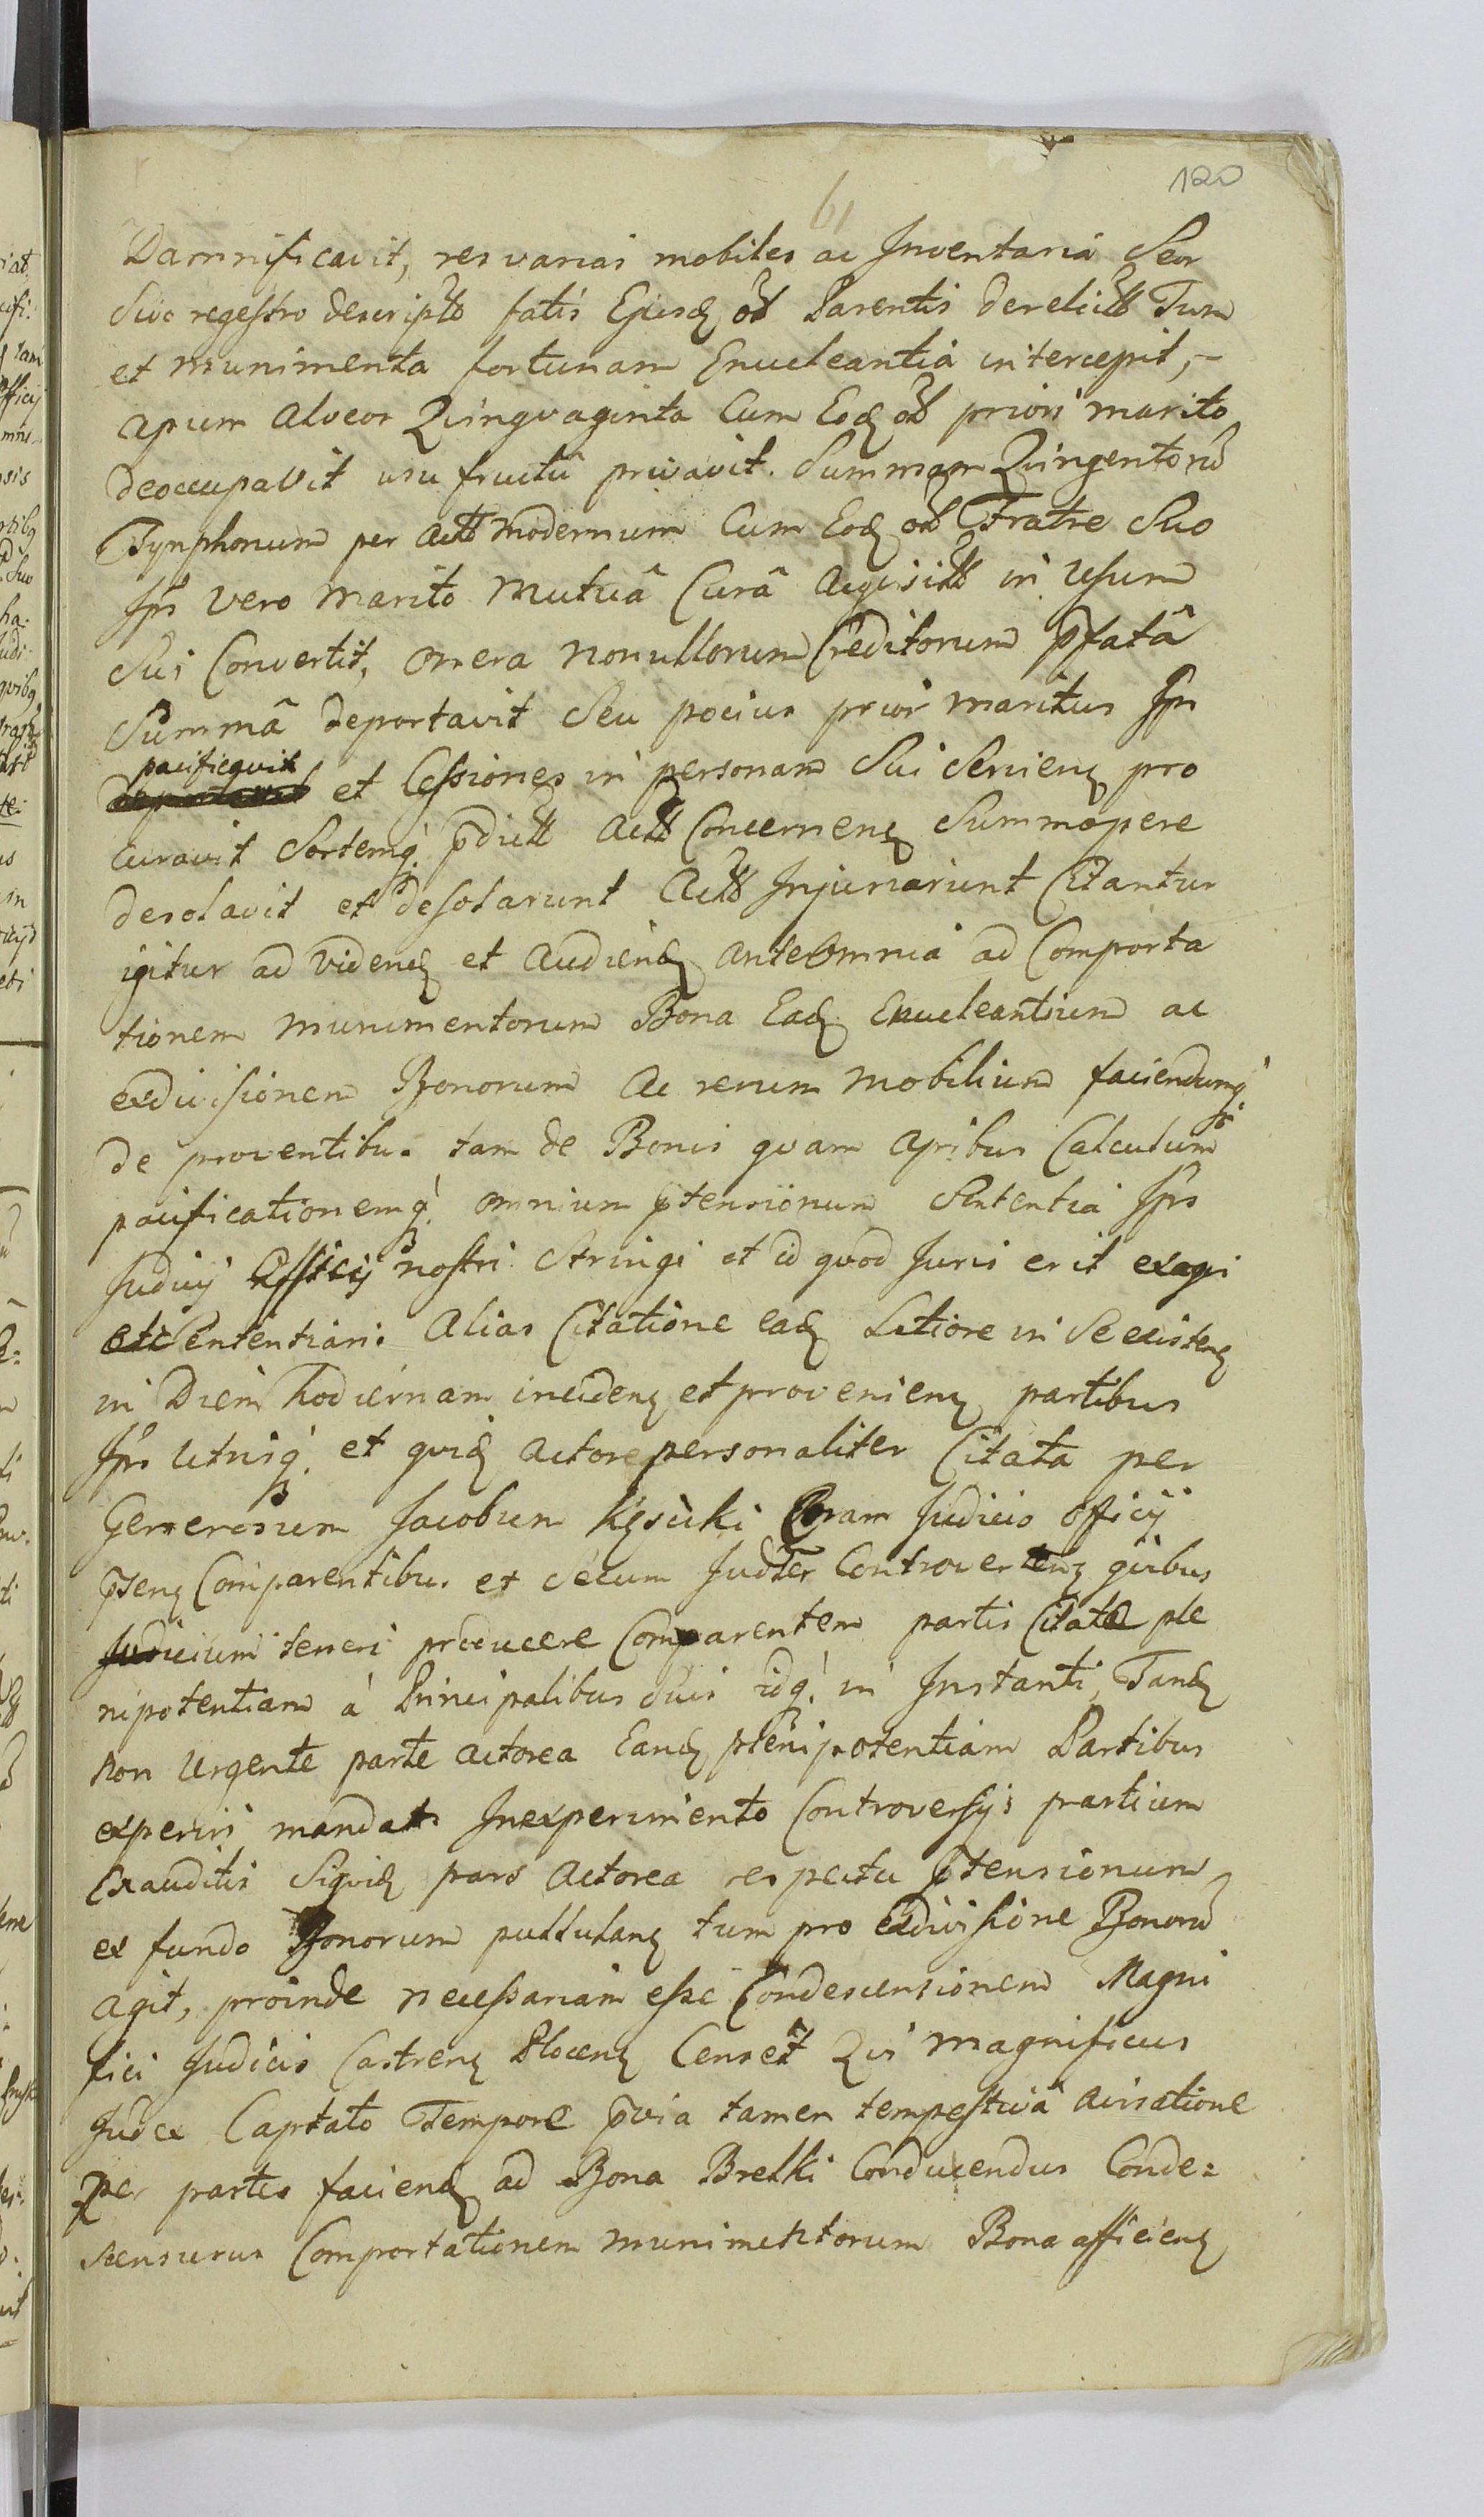 120
61
Damnificavit, res varias mobiles ac Inventaria Seu
Sive regestro descriptô fatis Ejusdꝫ olꝫ Parentis derelictô Tum
et munimenta fortunam Enucleantia intercepit, –
apum alveos Qvinqvaginta Cum Eodꝫ olꝫ priori marito
deoccupavit usu fructu privavit. Summam Qvingentorũ
Tynphonum per Actô modernum Cum Eodꝫ olꝫ Fratre Suo
Ips vero marito mutuâ Curâ Aqvisitô in Usum
Sui Convertit, onera nonullorum Creditorum p̃fatâ
Summâ deportavit Seu pocius prior maritus Ips
pacificavit
et Cessiones in personam Sui Servienꝫ pro
curavit Sortemq̃ p̃dictô Actô Concernenꝫ Summopere
desolavit et desolarunt Actô Injuriarunt Citantur
igitur ad Videndꝫ et Audiendꝫ anteomnia ad Comporta
tionem munimentorum Bona Eadꝫ Enucleantium ac
exdivisionem Bonorum Ac rerum mobilium faciendumq̃
de proventibus tam de Bonis qvam apibus Calculum
pacificationemq̃ omnium p̃tensionum Sententia Ips
Judicij Officij nostri Stringi et id qvod Juris erit exagi
et Sententiari. Alias Citatione eadꝫ Latiore in Se existenꝫ
in Diem hodiernam incidenꝫ et provenienꝫ partibus
Ips Utrisq̃ et qvidꝫ Actore personaliter Citata per
Generosum Jacobum Kęsicki Coram Judicio Officij
p̃senꝫ Comparentibus et Secum Judr̃ Controvertenꝫ qvibus
Judicium teneri producere Comparentem partis Citatæ ple
nipotentiam à Principalibus Suis idq̃ in Instanti, Tandꝫ
non Urgente parte Actorea Eandꝫ plenipotentiam Partibus
experiri mandat. Inexperimento Controversijs partium
Exauditis Siqvidꝫ pars Actorea respectu p̃tensionum
ex fundo Bonorum pullulanꝫ tum pro exdivisione Bonorũ
agit, proinde necessariam esse Condescensionem Magni
fici Judicis Castrenꝫ Plocenꝫ Censet Qvi Magnificus
Judex Captato Tempore p̃via tamen tempestivâ avisatione
per partes faciendꝫ ad Bona Brelki Conducendus Conde=
scensurus Comportationem munimentorum Bona afficienꝫ